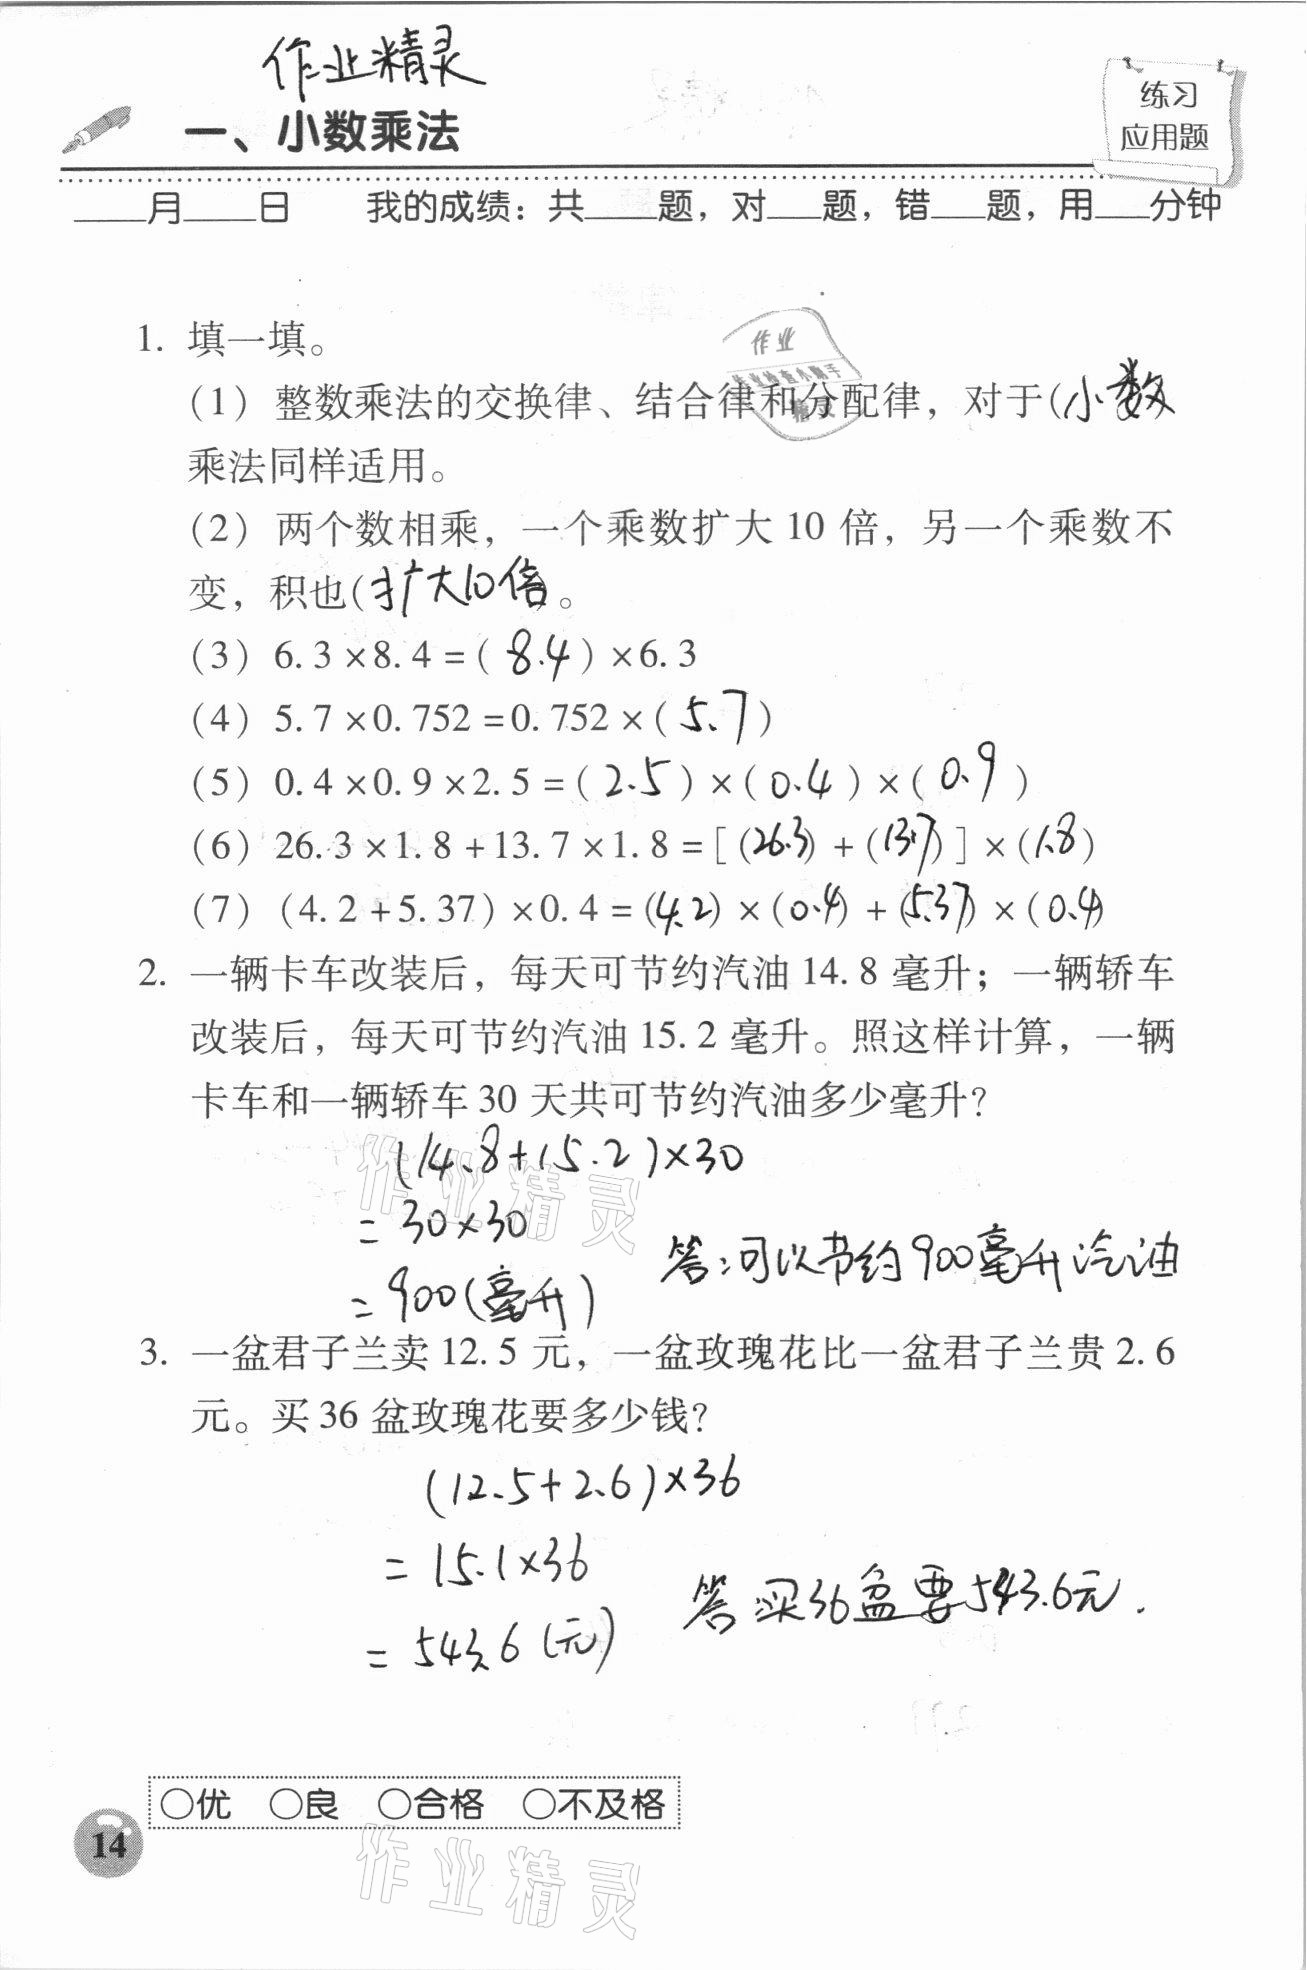 作业精灵
一、小数乘法
练习
应用题
____月____日 我的成绩：共____题，对___题，错___题，用___分钟
1. 填一填。
作业
作业检查小助手
精灵
（1）整数乘法的交换律、结合律和分配律，对于(小数
乘法同样适用。
（2）两个数相乘，一个乘数扩大 10 倍，另一个乘数不
变，积也(扩大10倍)。
（3）6.3×8.4=(8.4)×6.3
（4）5.7×0.752=0.752×(5.7)
（5）0.4×0.9×2.5=(2.5)×(0.4)×(0.9)
（6）26.3×1.8+13.7×1.8=[(26.3)+(13.7)]×(1.8)
（7）(4.2+5.37)×0.4=(4.2)×(0.4)+(5.37)×(0.4)
2. 一辆卡车改装后，每天可节约汽油 14.8 毫升；一辆轿车
改装后，每天可节约汽油 15.2 毫升。照这样计算，一辆
卡车和一辆轿车 30 天共可节约汽油多少毫升？
(14.8+15.2)×30
作业精灵
=30×30
答:可以节约900毫升汽油
=900(毫升)
3. 一盆君子兰卖 12.5 元，一盆玫瑰花比一盆君子兰贵 2.6
元。买 36 盆玫瑰花要多少钱？
(12.5+2.6)×36
=15.1×36
答:买36盆要543.6元.
=543.6(元)
○优 ○良 ○合格 ○不及格
14
作业精灵